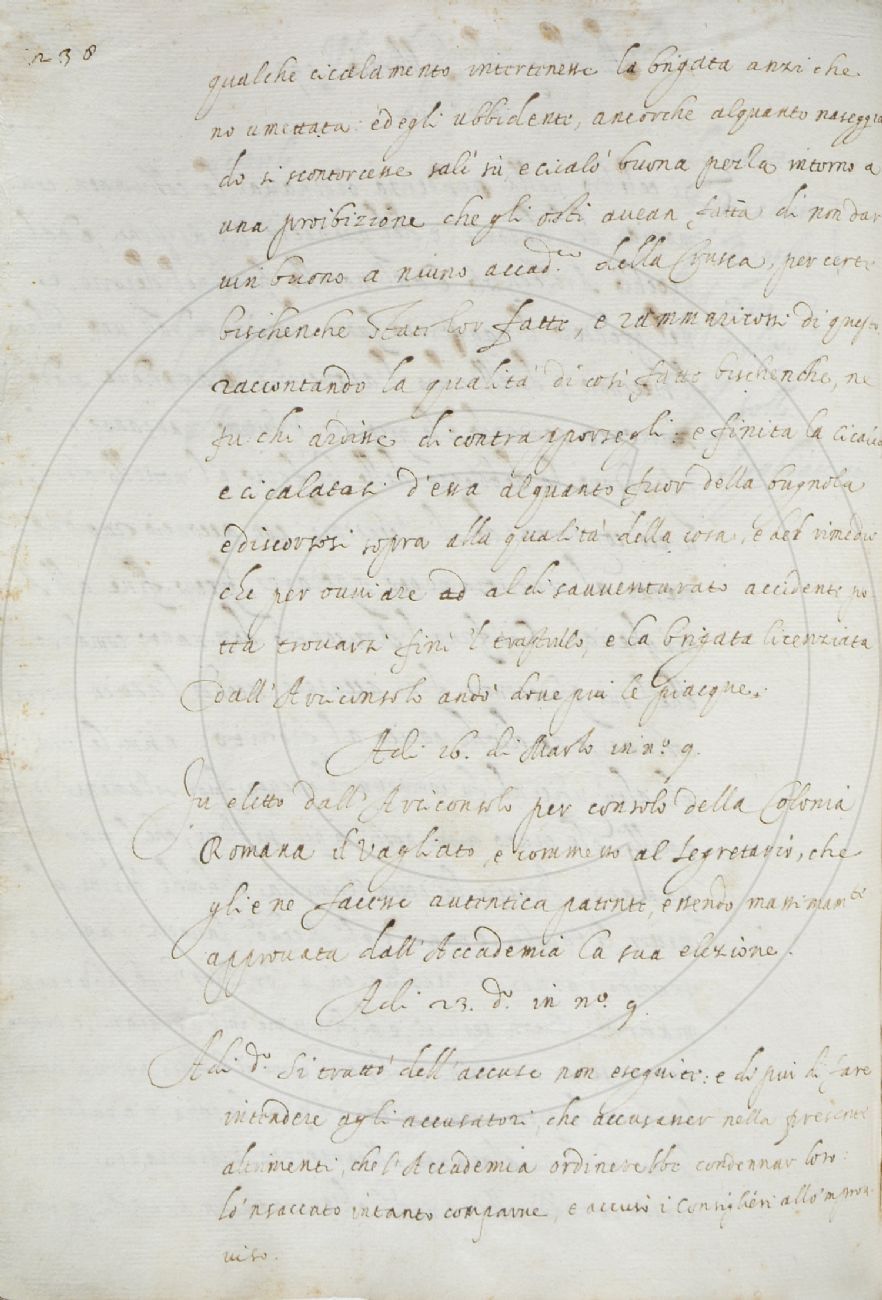 238
qualche cicalamento intertenesse la brigata anzi che
no umettata: ed egli ubbidente, ancorche alquanto naseggia
do si scontorcesse salì sù, e cicalò buona pezza intorno a
una proibizione che gli osti avean fatta di non dar
vin buono a niuno accad.co della Crusca, per certe
bischenche state lor fatte, e rammaricossi di questo
raccontando la qualità di così fatte bischenche, ne
fu chi ardisse di contrapporsegli: e finita la cicala
e cicalatasi d'essa alquanto fuor della bugnola
e discorsosi sopra alla qualità della cosa, e del rimedio
che per ovviare ad al disavventurato accidente po
tta trovarsi finì 'l trastullo, e la brigata licenziata
dall'Arciconsolo andò dove più le piacque.
Adi 16. di Marzo in n.o 9.
Fu eletto dall'Arciconsolo per consolo della Colonia
Romana il Vagliato, e commesso al segretario, che
gliene facesse autentica patente, essendo massimam.te
approvata dall'Accademia la sua elezione.
Adi 23. d.o in n.o 9.
Adi d.o Si trattò dell'accuse non eseguite: e di più di fare
intendere agli accusatori, che accusasser nella presente
altrimenti, che l'Accademia ordinerebbe condennar loro:
lo 'nsaccato intanto comparve, e accusò i Consiglieri allo 'mprov
viso.